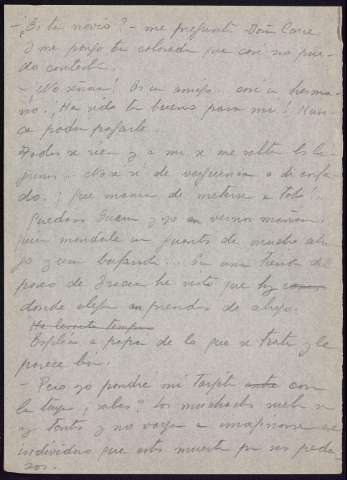 - ¿Es tu novio? - me preguntó Doña Cone
Y me pongo tan colorada que casi no pue-
do contestar.
- ¡No señora! Es un amigo.. como un herma-
no. ¡Ha sido tan bueno para mí! Nun-
ca podré pagarle..
Todos se ríen y a mí se me saltan las lá-
grimas.. No sé si de vergüenza o de enfa-
do. ¡Que manía de meterse a todo!..
Quedamos Juan y yo en vernos mañana
para mandarle un jersey de mucho abri-
go y una bufanda... En una tienda del
paseo de Gracia he visto que hay
donde elegir en prendas de abrigo.
He tiempo
Explico a papá de lo que se trata y le
parece bien.
- Pero yo pondré mi tarjeta con
la tuya, ¿sabes? Los muchachos suelen
ser tontos y no vaya a imaginarse ese
individuo que estás muerta por sus peda-
zos.